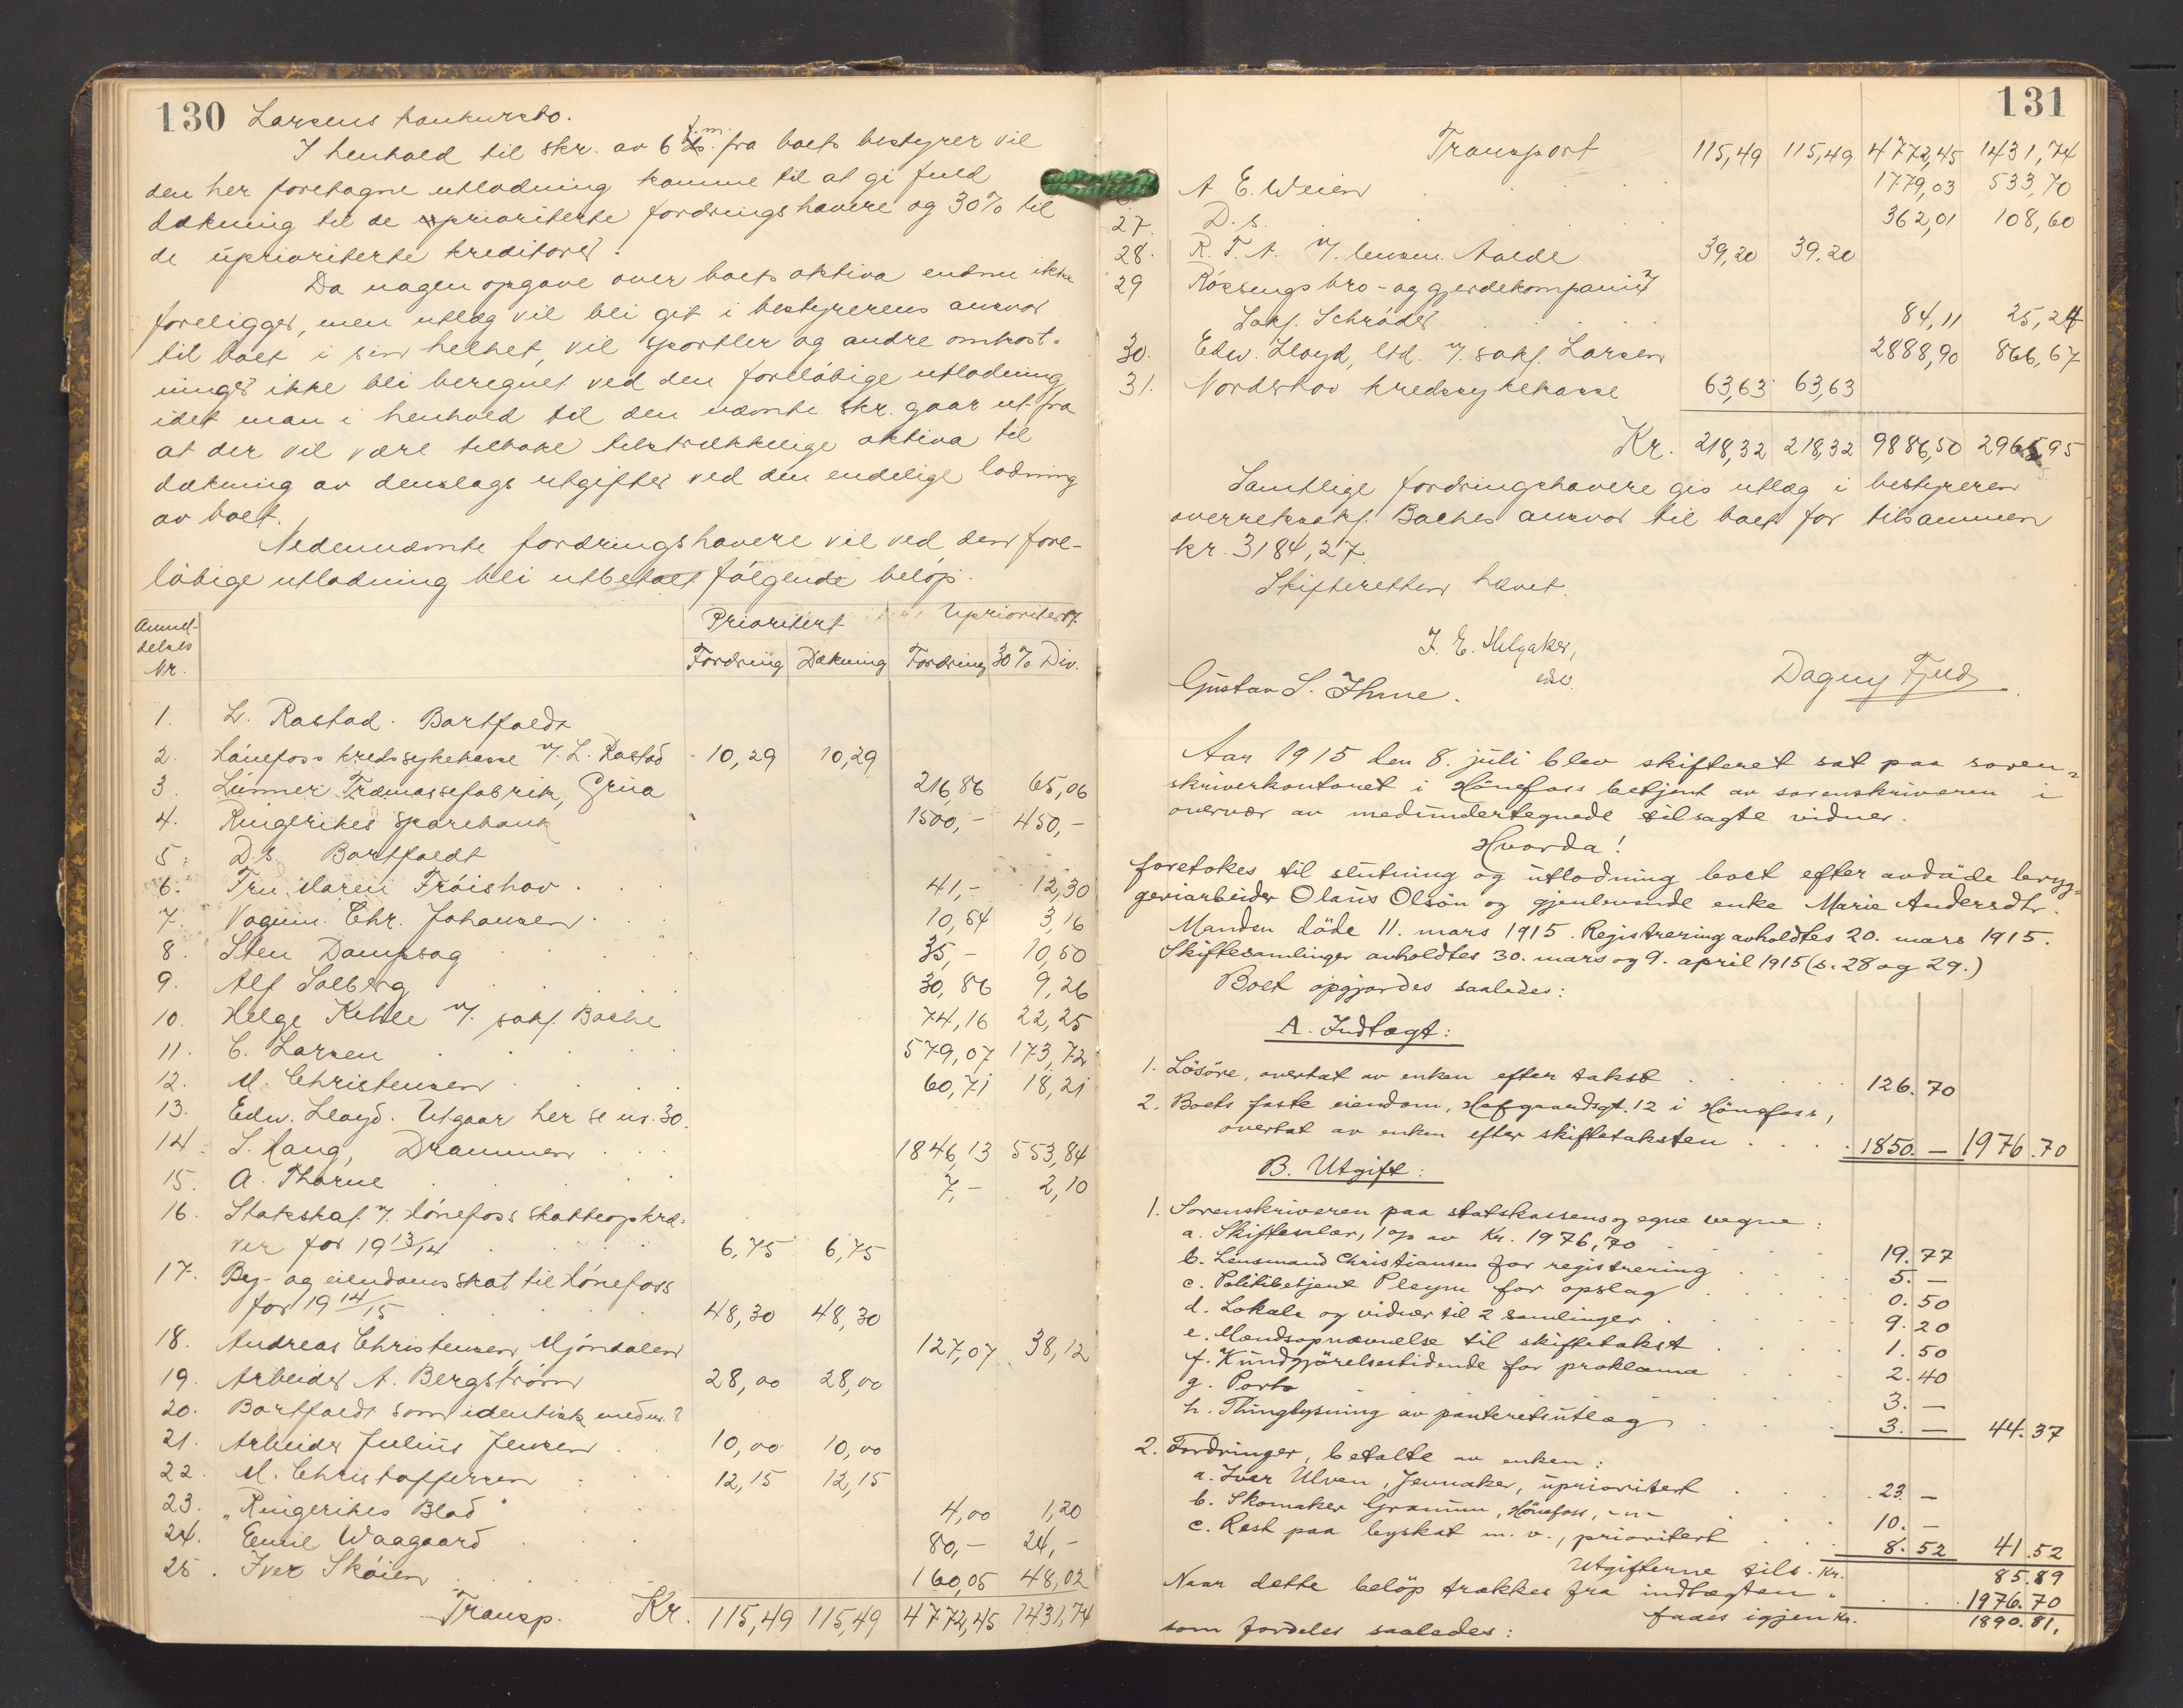 130 Larsens konkursbo.
I henhold til skr. av 6 f.m. fra boets bestyrer vil
den her foretagne utlodning komme til at gi fuld
dækning til de prioriterte fordringshavere og 30% til
de uprioriterte kreditorer.
Da nogen opgave over boets aktiva endnu ikke
foreligger, men utlæg vil bli git i bestyrerens ansvar
til boet i sin helhet, vil sportler og andre omkost-
ninger ikke bli beregnet ved den foreløbige utlodning
idet man i henhold til den nævnte skr. gaar ut fra
at der vil være tilbake tilstrækkelige aktiva til
dækning av denslags utgifter ved den endelige lodning
av boet.
Nedennævnte fordringshavere vil ved den fore-
løbige utlodning bli utbetalt følgende beløp.
Anmel-
delses
Nr.
Prioritert Uprioritert
Fordring Dækning Fordring 30% Div.
1. L. Rastad. Bortfaldt
2. Hønefoss kredssykekasse v/. L. Rastad 10,29 10,29
3. Lunner Træmassefabrik, Grua 216,86 65,06
4. Ringerikes Sparebank 1500,- 450,-
5. D.s. Bortfaldt
6. Fru Maren Frøishov . 41,- 12,30
7. Vognm. Chr. Johansen . 10,54 3,16
8. Sten Dampsag 35,- 10,50
9. Alf Solberg 30,86 9,26
10. Helge Kihle v/. sakf. Bache 74,16 22,25
11. C. Larsen 579,07 173,72
12. M. Christensen 60,71 18,21
13. Edw. Lloyd. Utgaar her se nr. 30.
14. S. Haug, Drammen 1846,13 553,84
15. A. Thorne 7,- 2,10
16. Statskat v/. Hønefoss skatteopkræ-
ver for 1913/14 6,75 6,75
17. By- og eiendomsskat til Hønefoss
for 1914/15 48,30 48,30
18. Andreas Christensen, Mjøndalen 127,07 38,12
19. Arbeider A. Bergstrøm 28,00 28,00
20. Bortfaldt som identisk med nr. 8
21. Arbeider Julius Jensen 10,00 10,00
22. M. Christoffersen 12,15 12,15
23. „Ringerikes Blad" 4,00 1,20
24. Emil Waagaard 80,- 24,-
25. Iver Skøien 160,05 48,02
Transp. Kr. 115,49 115,49 4772,45 1431,74
131
Transport 115,49 115,49 4772,45 1431,74
A. E. Weien 1779,03 533,70
27. D.s. 362,01 108,60
28. R. T. A. v/. lensm. Aalde 39,20 39,20
29 Røssengs bro- og gjerdekompani v/
Sakf. Schrøder 84,11 25,24
30. Edw. Lloyd, ltd. v/. sakf. Larsen 2888,90 866,67
31. Norderhov kredssykekasse 63,63 63,63
Kr. 218,32 218,32 9886,50 2965,95
Samtlige fordringshavere gis utlæg i bestyreren
overretssakf. Baches ansvar til boet for tilsammen
kr. 3184,27.
Skifteretten hævet.
J. E. Helgaker,
edsv.
Gustav S. Thine. Dagny Fjeld
Aar 1915 den 8. juli blev skifteret sat paa soren-
skriverkontoret i Hönefoss betjent av sorenskriveren i
overvær av medundertegnede tilsagte vidner.
Hvorda!
foretokes til slutning og utlodning boet efter avdöde bryg-
geriarbeider Olaus Olsön og gjenlevende enke Marie Andersdtr.
Manden döde 11. mars 1915. Registrering avholdtes 20. mars 1915.
Skiftesamlinger avholdtes 30. mars og 9. april 1915 (s. 28 og 29.)
Boet opgjordes saaledes:
A. Indtægt:
1. Lösöre, overtat av enken efter takst 126.70
2. Boets faste eiendom, Hofgaardsgt. 12 i Hönefoss,
overtat av enken efter skiftetaksten 1850.— 1976.70
B. Utgift:
1. Sorenskriveren paa statskassens og egne vegne:
a. Skiftesalær, 1 o/o av Kr. 1976,70 19.77
b. Lensmand Christiansen for registrering 5.—
c. Politibetjent Pleym for opslag 0.50
d. Lokale og vidner til 2 samlinger 9.20
e. Mændsopnævnelse til skiftetakst 1.50
f. Kundgjörelsestidende for proklama 2.40
g. Porto 3.—
h. Thinglysning av panteretsutlæg 3.— 44.37
2. Fordringer, betalte av enken:
a. Iver Ulven, Jevnaker, uprioritert 23.—
b. Skomaker Gramm, Hönefoss, -"- 10.—
c. Rest paa byskat m. v., prioritert 8.52 41.52
Utgifterne tils. Kr. 85.89
Naar dette belöp trækkes fra indtægten " 1976.70
faaes igjen Kr. 1890.81.
som fordeles saaledes: